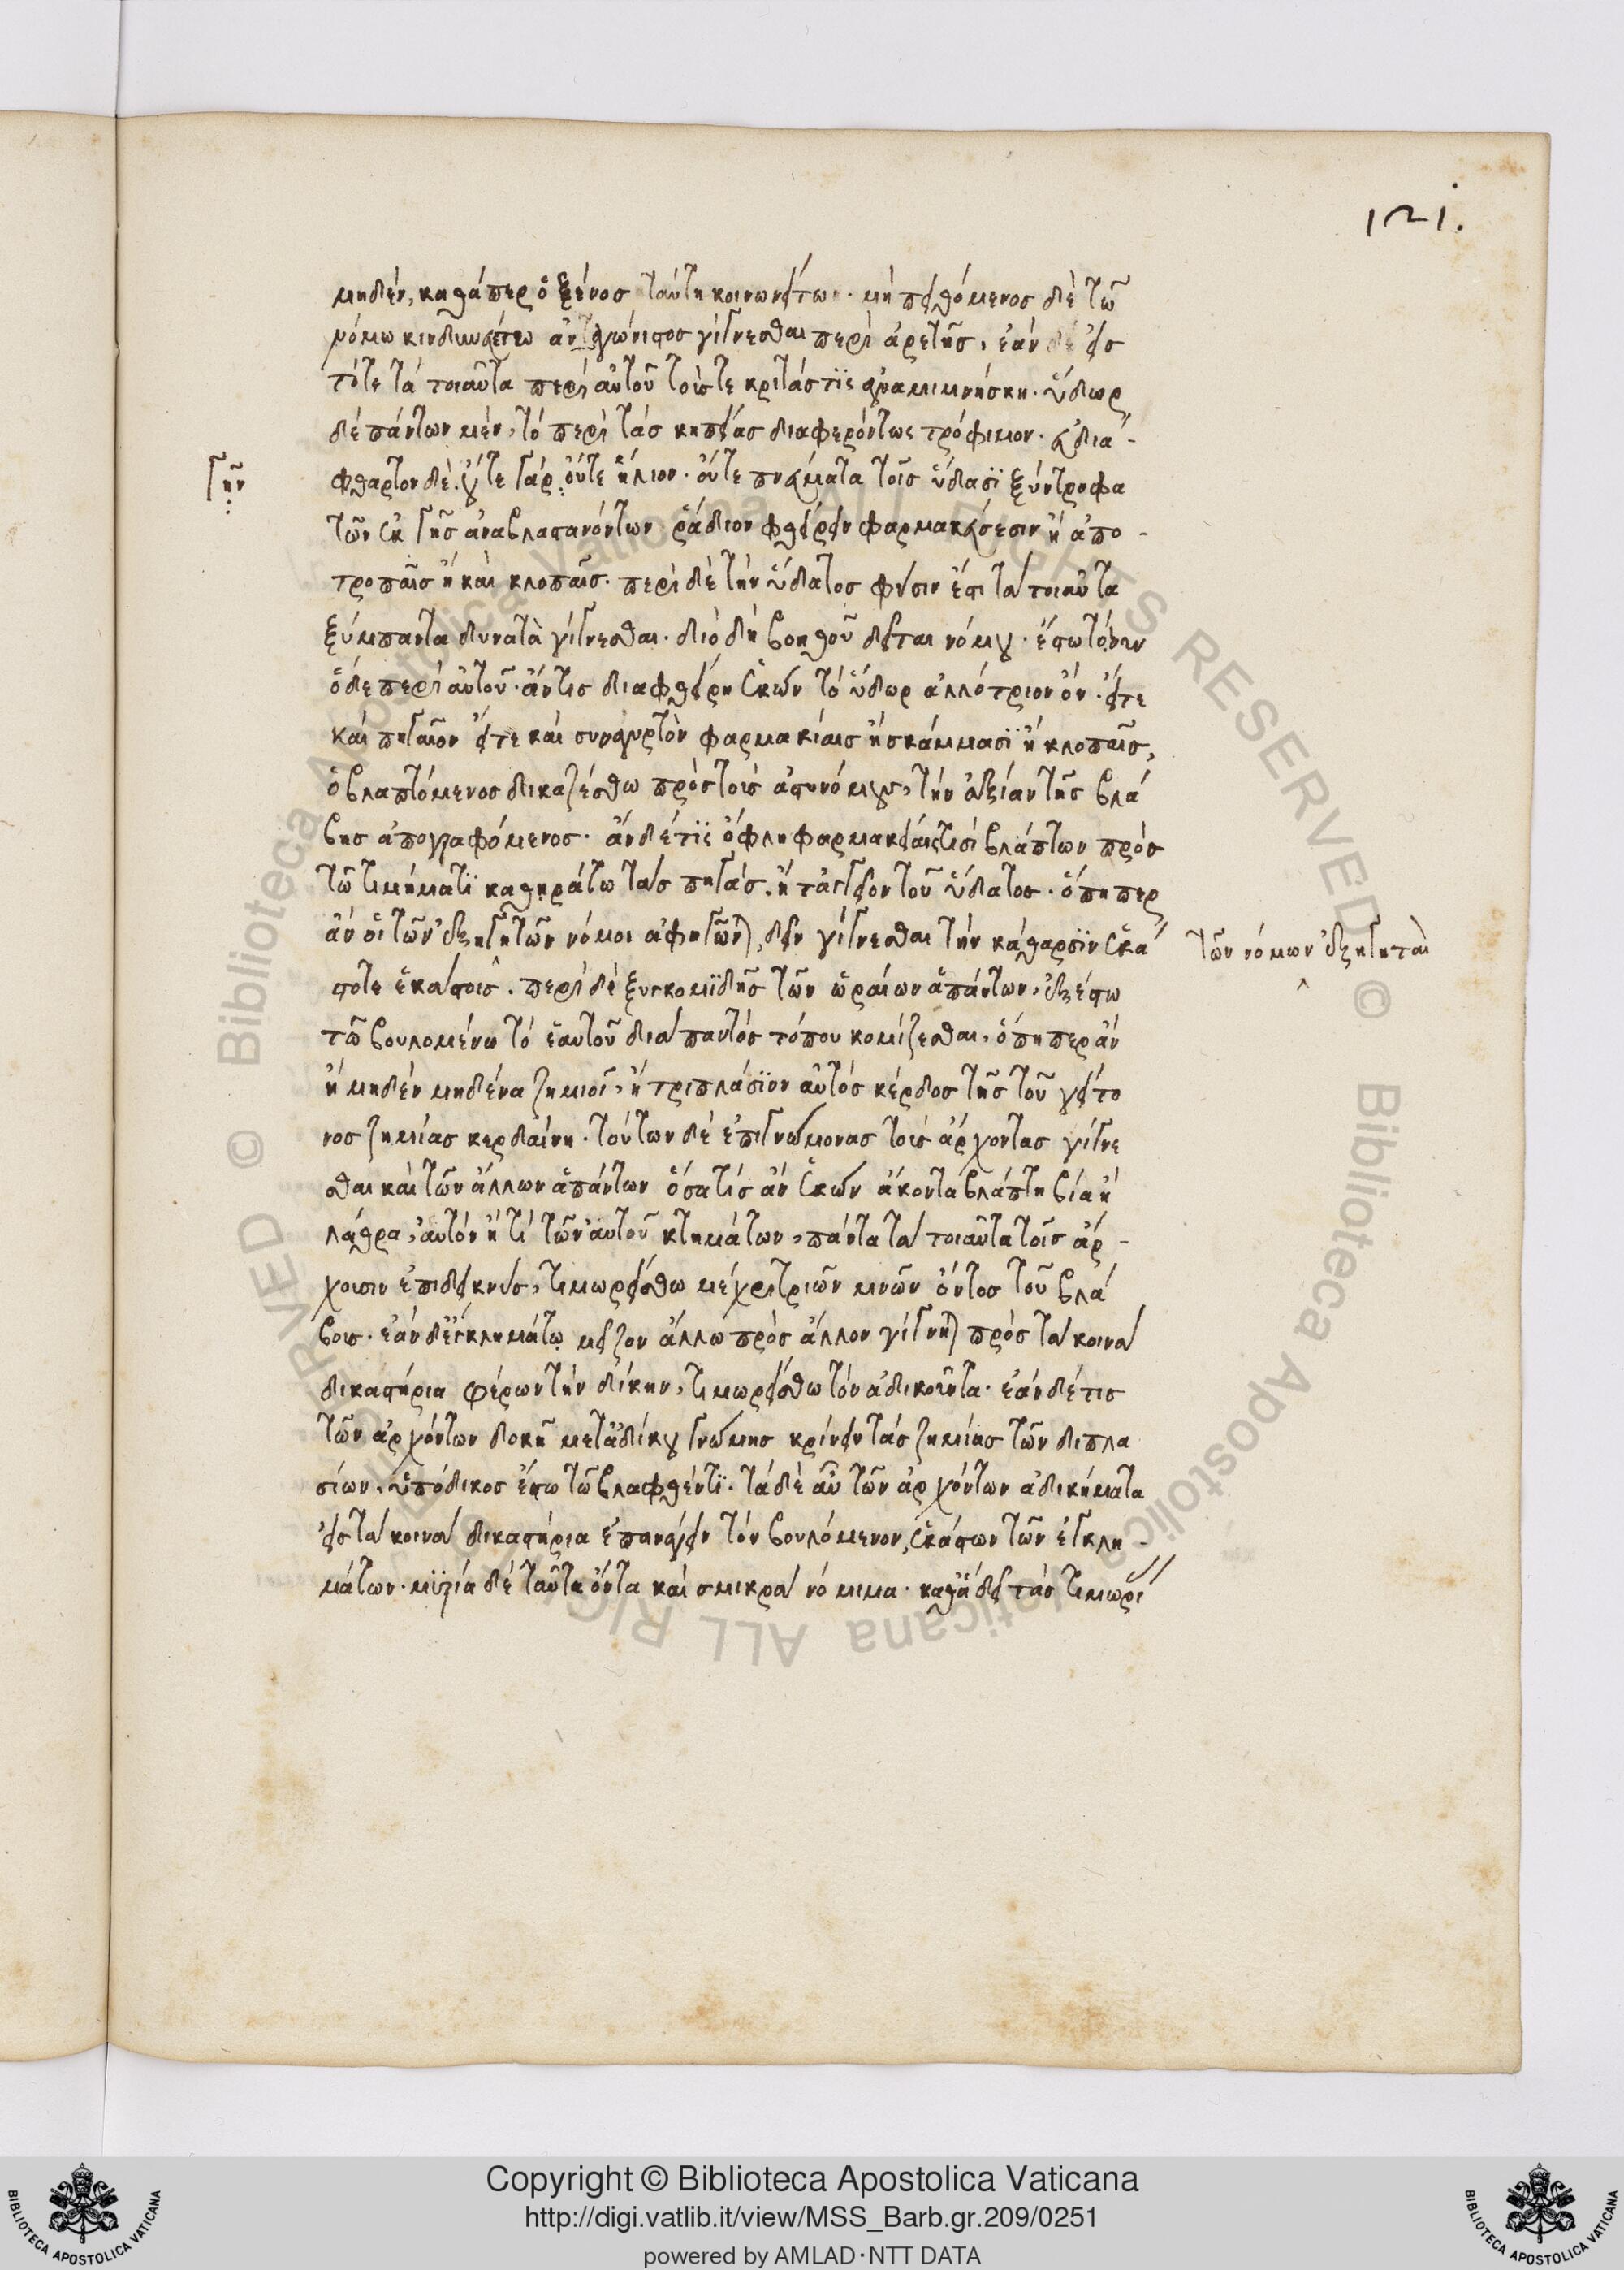 121.
μηδέν, καθάπερ ὁ ξένος ταύτη κοινωνείτω. μὴ πειθόμενος δὲ τῶ
νόμω κινδυνευέτω ἀνταγώνιστος γίγνεσθαι περὶ ἀρετῆς, ἐὰν δέ εἰς
τότε τὰ τοιαῦτα περὶ αὐτοῦ τοὺς τε κριτάς τϊς ἀναμιμνήσκη. ὕδωρ
δὲ πάντων μέν, τὸ περὶ τὰς κηπείας διαφερόντως τρόφιμον. εὐδιά-
γῆν
φθαρτον δέ. οὔτε γὰρ οὔτε ἥλιον. οὔτε πνεύματα τοῖς ὕδασϊ ξύντροφα
τῶν ἐκ γῆς ἀναβλαστανόντων ῥάδιον φθείρειν φαρμακεύσεσιν ἢ ἀπο-
τροπαῖς ἢ καὶ κλοπαῖς. περὶ δὲ τὴν ὕδατος φύσιν ἐστι τὰ τοιαῦτα
ξύμπαντα δυνατὰ γίγνεσθαι. διὸ δὴ βοηθοῦ δεῖται νόμου. ἔστω τόνυν
ὅδε περὶ αὐτοῦ. ἄντις διαφθείρη ἑκὼν τὸ ὕδωρ ἀλλότριον ὂν. εἴτε
καὶ πηγαῖον εἴτε καὶ συναγυρτὸν φαρμακίαις ἢ σκάμμασϊ ἢ κλοπαῖς,
ὁ βλαπτόμενος δικαζέσθω πρὸς τοὺς ἀστυνόμους, τὴν ἀξίαν τῆς βλά
βης ἀπογραφόμενος. ἂν δέ τϊς ὄφλη φαρμακείαις τισὶ βλάπτων πρὸς
τῶ τιμήματϊ καθηράτω τὰς πηγάς. ἢ τἀγγεῖον τοῦ ὕδατος. ὅπηπερ
ἂν οἱ τῶν ἐξηγητῶν νόμοι ἀφηγῶνται, δεῖν γίγνεσθαι τὴν κάθαρσϊν ἑκά
τῶν νόμων ἐξηγηταὶ
στοτε ἑκάστοις. περὶ δὲ ξυγκομϊδῆς τῶν ὡραίων ἁπάντων, ἐξέστω
τῶ βουλομένω τὸ ἑαυτοῦ διὰ παντὸς τόπου κομίζεσθαι, ὅπηπερ ἂν
ἢ μηδὲν μηδένα ζημιοῖ, ἢ τριπλάσϊον αὐτὸς κέρδος τῆς τοῦ γείτο
νος ζημίας κερδαίνη. τούτων δὲ ἐπιγνώμονας τοὺς ἄρχοντας γίγνε
σθαι καὶ τῶν ἄλλων ἁπάντων ὅσα τίς ἂν ἑκὼν ἄκοντα βλάπτη βία ἢ
λάθρα, αὐτὸν ἤ τι τῶν αὐτοῦ κτημάτων, πάντα τὰ τοιαῦτα τοῖς ἄρ-
χουσιν ἐπιδεικνὺς, τιμωρείσθω μέχρι τριῶν μνῶν ὄντος τοῦ βλά
βους. ἐὰν δ' ἔγκλημά τω μεῖζον ἄλλω πρὸς ἄλλον γίγνηται πρὸς τὰ κοινὰ
δικαστήρια φέρων τὴν δίκην, τιμωρείσθω τὸν ἀδικοῦντα. ἐὰν δέ τις
τῶν ἀρχόντων δοκῆ μετ' ἀδίκου γνώμης κρίνειν τὰς ζημίας τῶν διπλα
σίων. ὑπόδικος ἔστω τῶ βλαφθέντϊ. τὰ δὲ αὖ τῶν ἀρχόντων ἀδικήματα
εἰς τὰ κοινὰ δικαστήρια ἐπανάγειν τὸν βουλόμενον, ἑκάστων τῶν ἐγκλη-
μάτων. μϋρία δὲ ταῦτα ὄντα καὶ σμικρὰ νόμιμα. καθ' ἃ δεῖ τὰς τιμωρί
Copyright © Biblioteca Apostolica Vaticana
http://digi.vatlib.it/view/MSS_Barb.gr.209/0251
powered by AMLAD·NTT DATA
BIBLIOTECA APOSTOLICA VATICANA
BIBLIOTECA APOSTOLICA VATICANA
© Biblioteca Apostolica Vaticana ALL RIGHTS RESERVED © Biblioteca Apostolica Vaticana ALL RIGHTS RESERVED